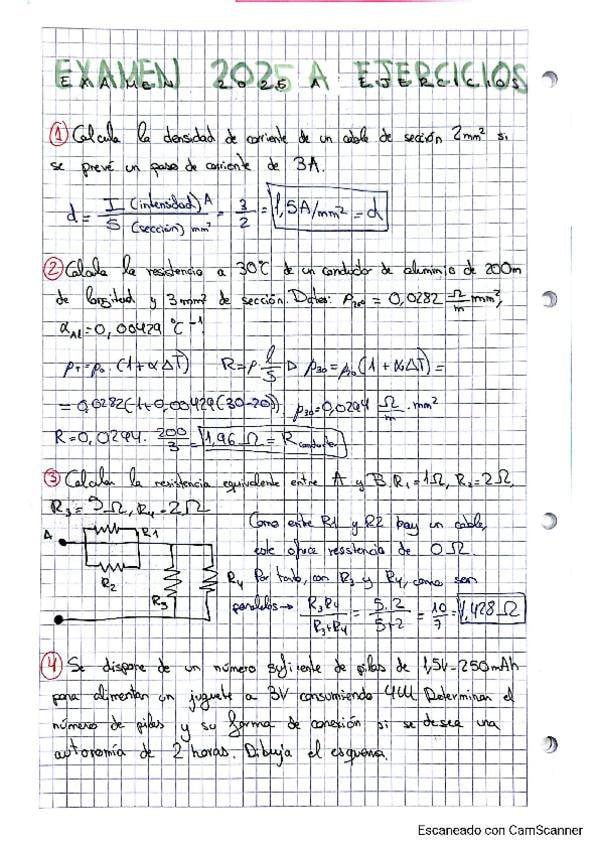 EXAMEN 2025 A EJERCICIOS
① Calcula la densidad de corriente de un cable de sección 2mm² si
se prevé un paso de corriente de 3A.
d = I (intensidad) A / S (sección) mm² = 3/2 = 1,5A/mm² = d
② Calcula la resistencia a 30°C de un conductor de aluminio de 200m
de longitud y 3mm² de sección. Datos: ρ20° = 0,0282 Ω/m mm²,
αAl = 0,00429 °C⁻¹
ρT = ρ0 · (1+αΔT) R = ρ · l/S ▷ ρ30 = ρ20(1+αΔT) =
= 0,0282(1+0,00429(30-20)) ρ30 = 0,0294 Ω/m · mm²
R = 0,0294 · 200/3 = 1,96 Ω = Rconductor
③ Calcular la resistencia equivalente entre A y B, R1 = 1Ω, R2 = 2Ω,
R3 = 5Ω, R4 = 2Ω
A
R1
R2
R3
R4
Como entre R1 y R2 hay un cable,
este ofrece resistencia de 0Ω.
Por tanto, con R3 y R4, como son
paralelos → R3R4 / R3+R4 = 5.2 / 5+2 = 10/7 = 1,428 Ω
④ Se dispone de un número suficiente de pilas de 1,5V-250mAh
para alimentar un juguete a 3V consumiendo 4W. Determinar el
número de pilas y su forma de conexión si se desea una
autonomía de 2 horas. Dibuja el esquema.
Escaneado con CamScanner